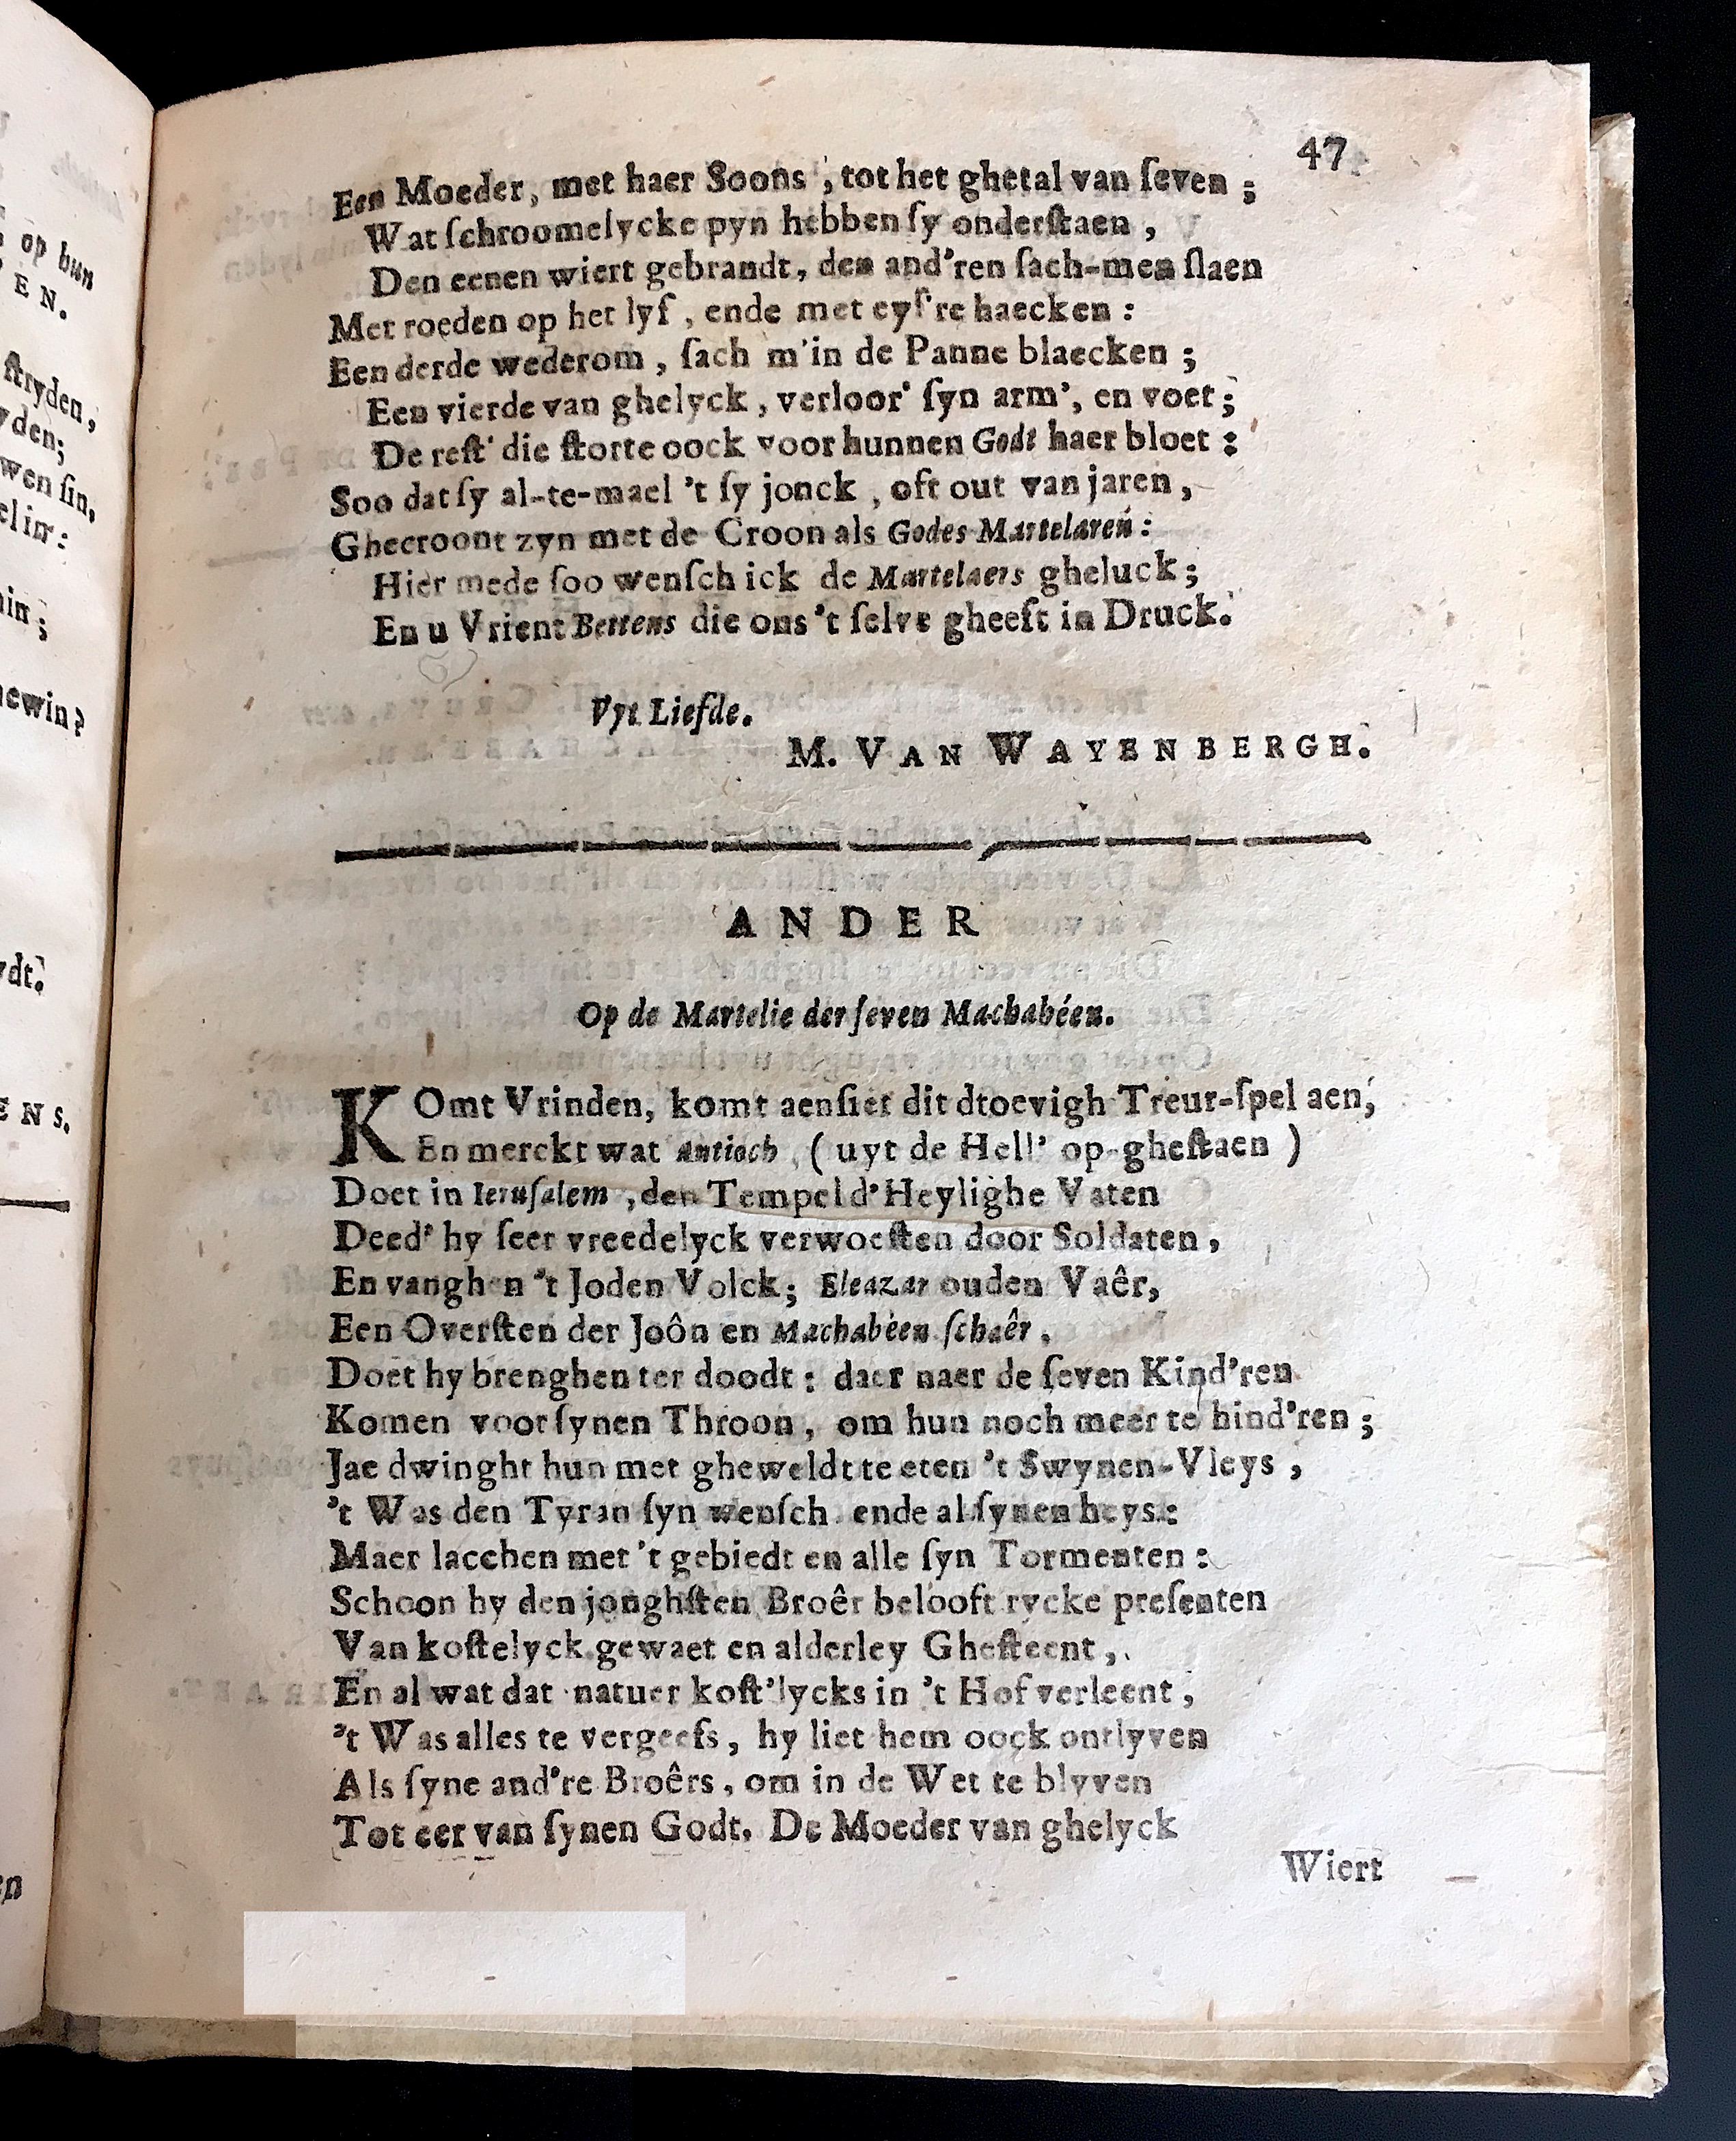 47
Een Moeder, met haer Soons, tot het ghetal van ſeven ;
Wat ſchroomelycke pyn hebben ſy onderſtaen ,
Den eenen wiert gebrandt, den and'ren ſach-men ſlaen
Met roeden op het lyf , ende met eyſ're haecken :
Een derde wederom , ſach m'in de Panne blaecken ;
Een vierde van ghelyck , verloor' ſyn arm', en voet ;
De reſt' die ſtorte oock voor hunnen Godt haer bloet :
Soo dat ſy al-te-mael 't ſy jonck , oft out van jaren ,
Ghecroont zyn met de Croon als Godes Martelaren :
Hier mede ſoo wenſch ick de Martelaers gheluck ;
En u Vrient Bettens die ons 't ſelve gheeft in Druck.
Vyt Liefde.
M. VAN WAYENBERGH.
ANDER
Op de Martelie der ſeven Machabéen.
KOmt Vrinden, komt aenſiet dit dtoevigh Treur-ſpel aen,
En merckt wat Antioch , ( uyt de Hell' op-gheſtaen )
Doet in Ieruſalem , den Tempel d'Heylighe Vaten
Deed' hy ſeer vreedelyck verwoeſten door Soldaten ,
En vanghen 't Joden Volck ; Eleazar ouden Vaêr,
Een Overſten der Joôn en Machabéen ſchaêr ,
Doet hy brenghen ter doodt : daer naer de ſeven Kind'ren
Komen voor ſynen Throon , om hun noch meer te hind'ren ;
Jae dwinght hun met gheweldt te eten 't Swynen-Vleys ,
't Was den Tyran ſyn wenſch ende al ſynen heys :
Maer lacchen met 't gebiedt en alle ſyn Tormenten :
Schoon hy den jonghſten Broêr belooft rycke preſenten
Van koſtelyck gewaet en alderley Gheſteent ,
En al wat dat natuer koſt'lycks in 't Hof verleent ,
't Was alles te vergeefs , hy liet hem oock ontlyven
Als ſyne and're Broêrs , om in de Wet te blyven
Tot eer van ſynen Godt. De Moeder van ghelyck
Wiert